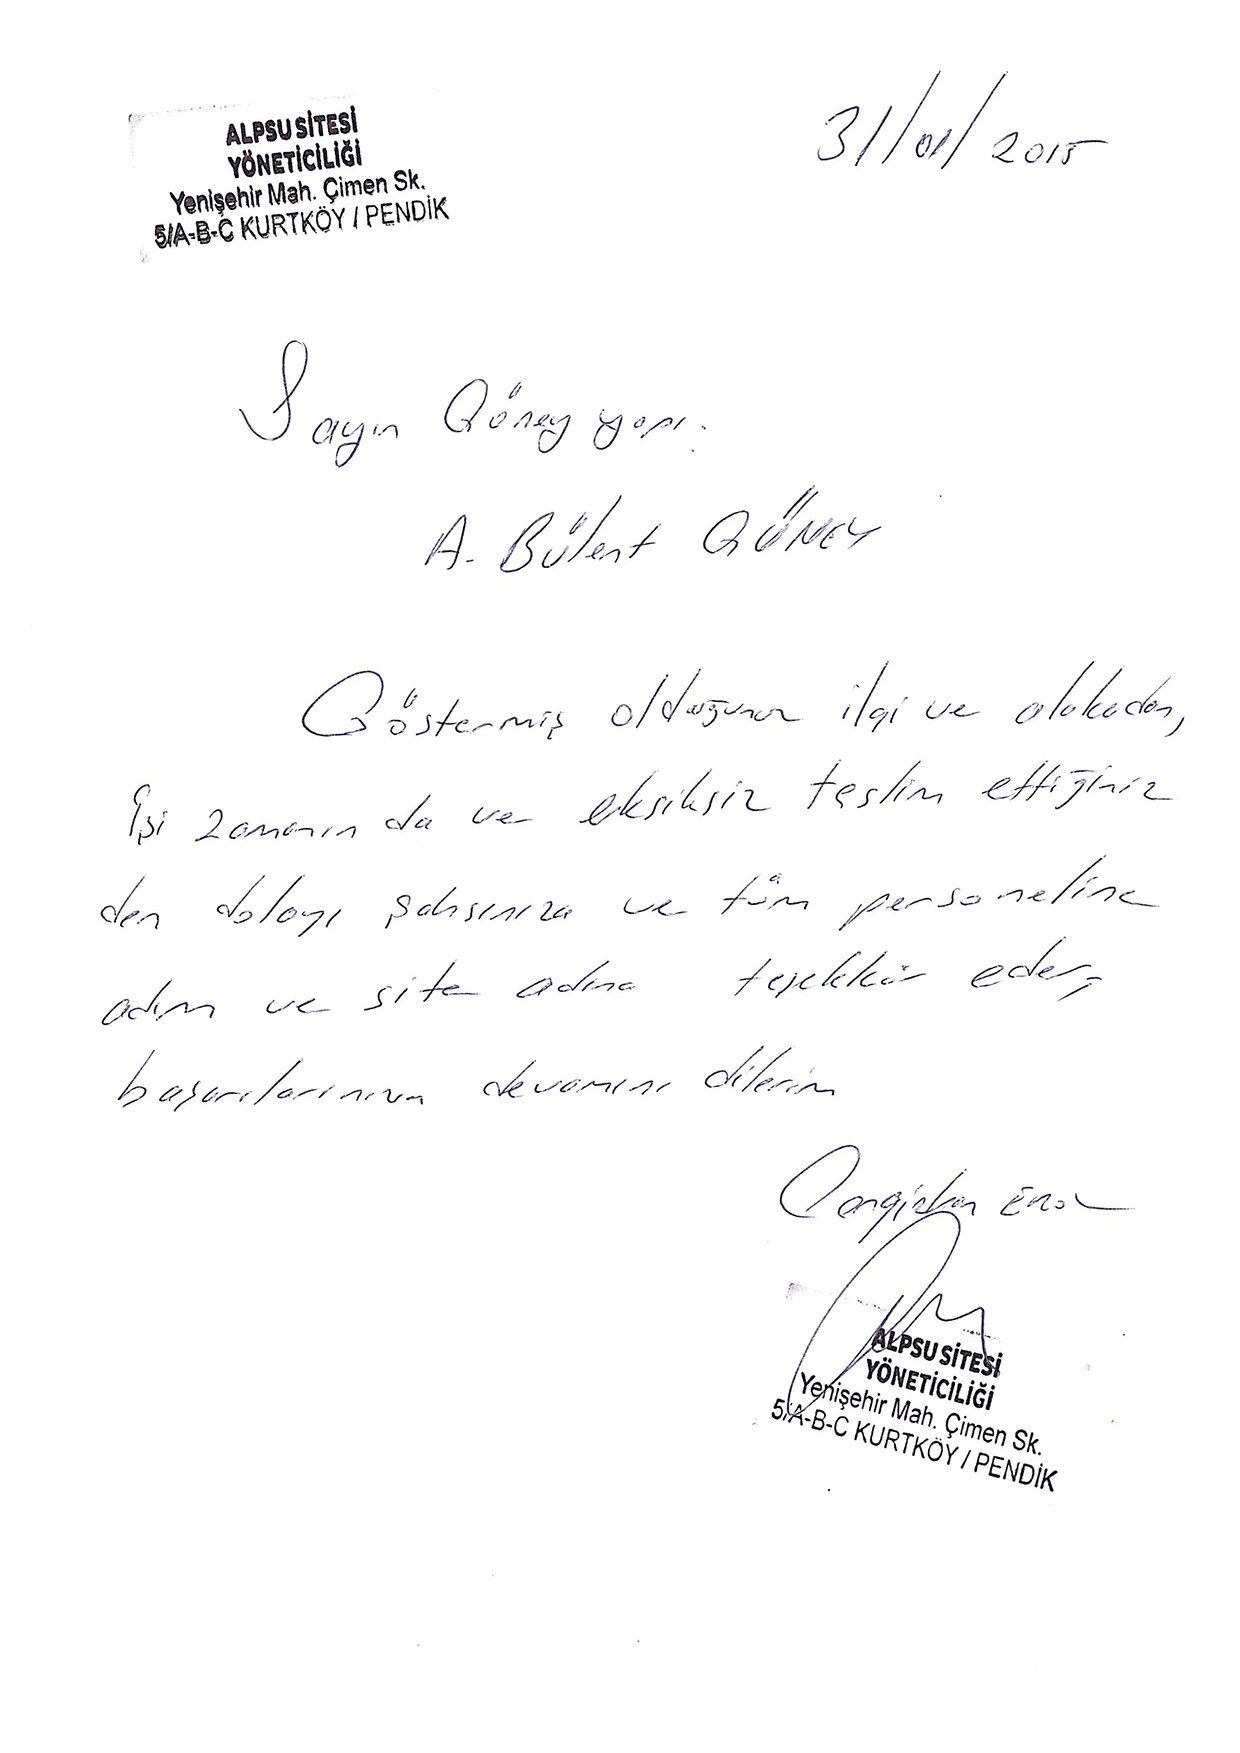 ALPSU SİTESİ
YÖNETİCİLİĞİ
Yenişehir Mah. Çimen Sk.
5/A-B-C KURTKÖY / PENDİK
31/01/2015
Sayın Göney yapı.
A. Bülent GÖNEY
Göstermiş olduğunuz ilgi ve alakadan,
İşi zamanında ve eksiksiz teslim ettiğiniz
den dolayı şahsınıza ve tüm personeline
adım ve site adına teşekkür eder,
başarılarınızın devamını dilerim
Cengizhan EROL
ALPSU SİTESİ
YÖNETİCİLİĞİ
Yenişehir Mah. Çimen Sk.
5/A-B-C KURTKÖY / PENDİK